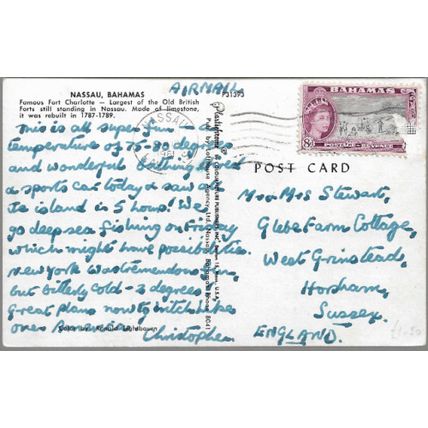 NASSAU, BAHAMAS
Famous Fort Charlotte — Largest of the Old British
Forts still standing in Nassau. Made of limestone,
it was rebuilt in 1787-1789.
P31393
AIRMAIL
NASSAU
BAHAMAS
8d
POSTAGE REVENUE
This is all super fun - a
temperature of 75-80 degrees
and wonderful bathing. Hired
a sports car today & saw
the island in 5 hours! We
go deep sea fishing on Friday
which might have possibilities.
New York was tremendous fun,
but bitterly cold - 3 degrees.
Great plans now to hitch hike
over
Christopher
Color by Roland
POST CARD
Mr & Mrs Stewart,
Glebe Farm Cottage,
West Grinstead,
Horsham,
Sussex,
ENGLAND.